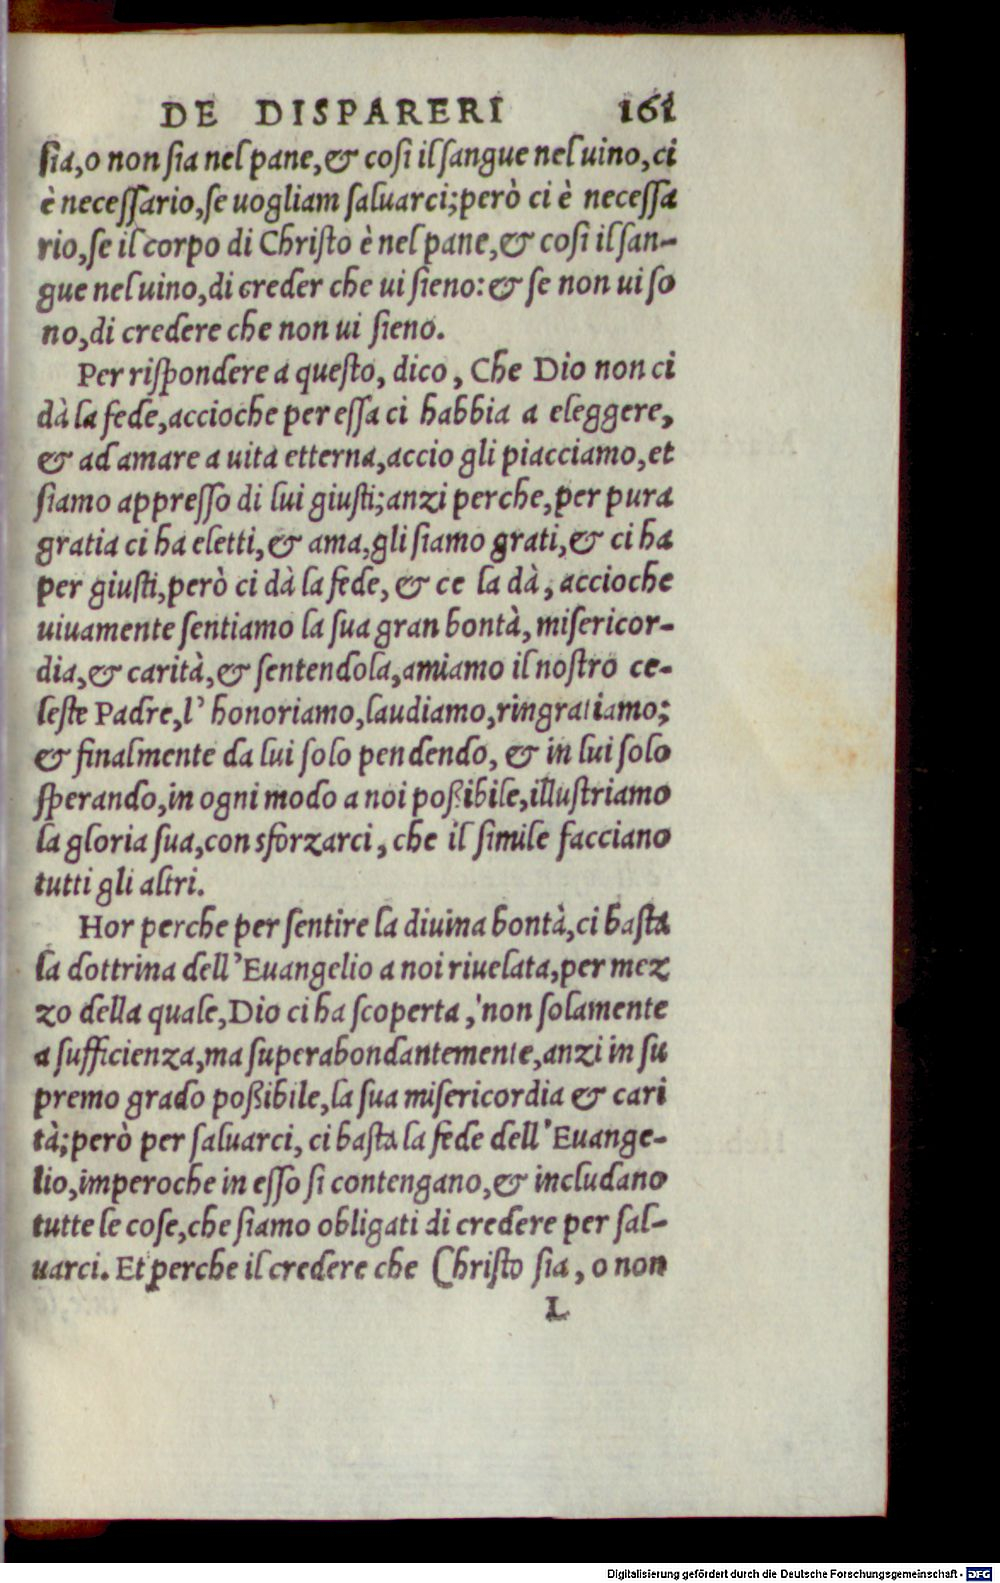 DE DISPARERI 161
sia,o non sia nel pane,& cosi il sangue nel uino,ci
è necessario,se uogliam saluarci;però ci è necessa
rio,se il corpo di Christo è nel pane,& cosi il san-
gue nel uino,di creder che ui sieno:& se non ui so
no,di credere che non ui sieno.
Per rispondere a questo, dico, Che Dio non ci
dà la fede,accioche per essa ci habbia a eleggere,
& ad amare a uita etterna,accio gli piacciamo,et
siamo appresso di lui giusti;anzi perche,per pura
gratia ci ha eletti,& ama,gli siamo grati,& ci ha
per giusti,però ci dà la fede, & ce la dà, accioche
uiuamente sentiamo la sua gran bontà, misericor-
dia,& carità,& sentendola,amiamo il nostro ce-
leste Padre,l' honoriamo,laudiamo,ringratiamo;
& finalmente da lui solo pendendo, & in lui solo
sperando,in ogni modo a noi poßibile,illustriamo
la gloria sua,con sforzarci, che il simile facciano
tutti gli altri.
Hor perche per sentire la diuina bontà,ci basta
la dottrina dell'Euangelio a noi riuelata,per mez
zo della quale,Dio ci ha scoperta, non solamente
a sufficienza,ma superabondantemente,anzi in su
premo grado poßibile,la sua misericordia & cari
tà;però per saluarci, ci basta la fede dell'Euange-
lio,imperoche in esso si contengano,& includano
tutte le cose,che siamo obligati di credere per sal-
uarci. Et perche il credere che Christo sia, o non
L
Digitalisierung gefördert durch die Deutsche Forschungsgemeinschaft - DFG